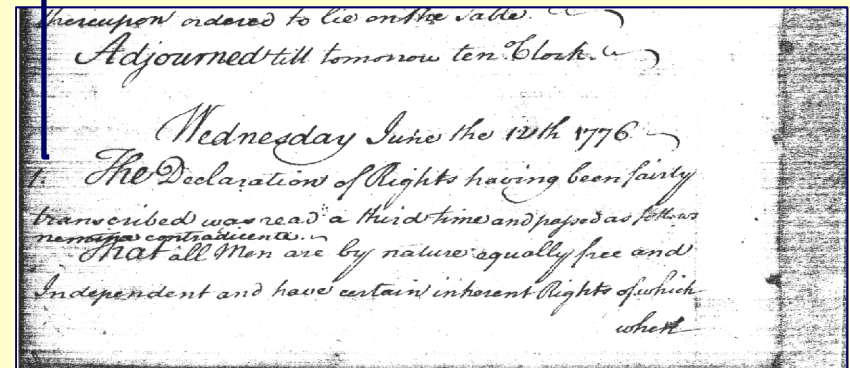 thereupon ordered to lie on the Table.
Adjourned till tomorrow ten O'Clock.
Wednesday June the 12th 1776
1. The Declaration of Rights having been fairly
transcribed was read a third time and passed as follows
nemine contradicente.
That all Men are by nature equally free and
Independent and have certain inherent Rights of which
when